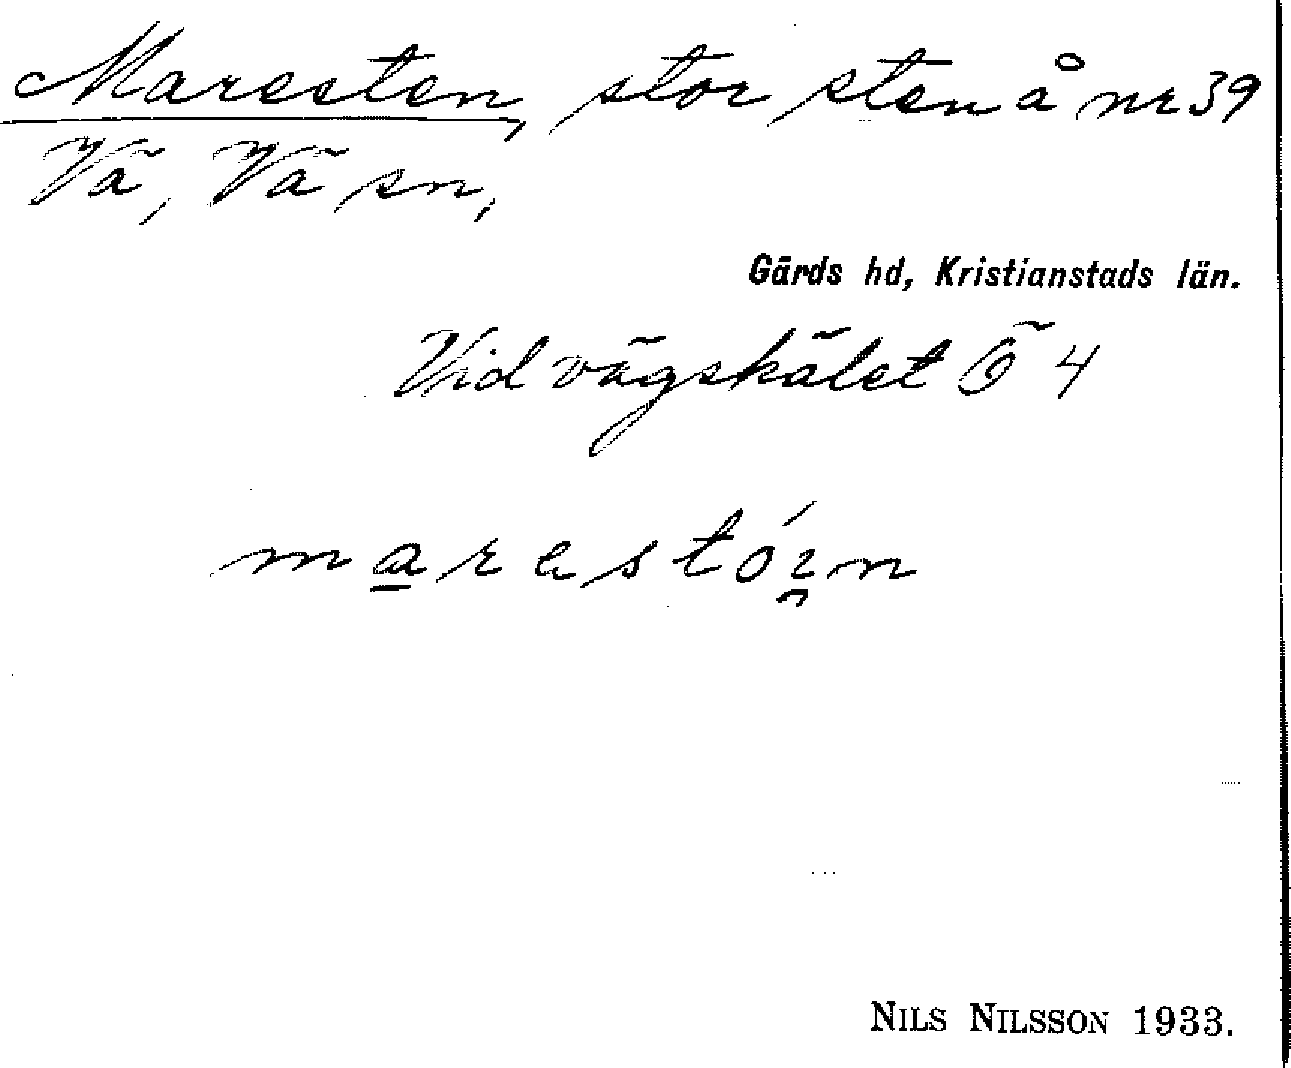 Maresten, stor sten å nr 39
Vä, Vä sn,
Gärds hd, Kristianstads län.
Vid vägskälet Ö 4
marestóin
NILS NILSSON 1933.